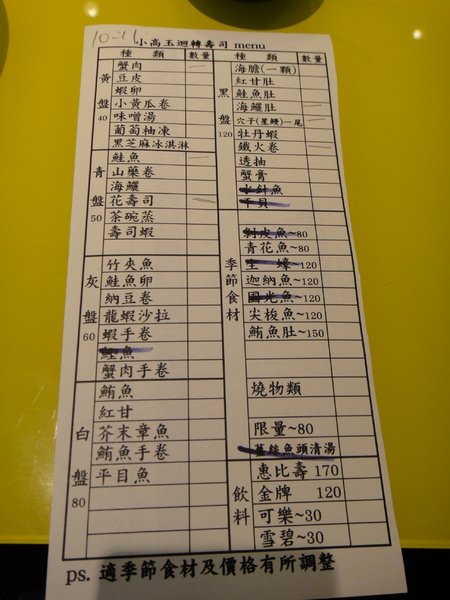 10-11
小高玉迴轉壽司 menu
種 類 數量
黃盤40
蟹肉
豆皮
蝦卵
小黃瓜卷
味噌湯
葡萄柚凍
黑芝麻冰淇淋
青盤50
鮭魚
山藥卷
海鱺
花壽司
茶碗蒸
壽司蝦
灰盤60
竹夾魚
鮭魚卵
納豆卷
龍蝦沙拉
蝦手卷
鰹魚
蟹肉手卷
白盤80
鮪魚
紅甘
芥末章魚
鮪魚手卷
平目魚
種 類 數量
黑盤120
海膽(一顆)
紅甘肚
鮭魚肚
海鱺肚
穴子(星鰻)一尾
牡丹蝦
鐵火卷
透抽
蟹膏
水針魚
干貝
季節食材
剝皮魚~80
青花魚~80
生 蠔~120
迦納魚~120
國光魚~120
尖梭魚~120
鮪魚肚~150
燒物類
限量~80
薑絲魚頭清湯
飲料
惠比壽 170
金牌 120
可樂~30
雪碧~30
ps. 適季節食材及價格有所調整